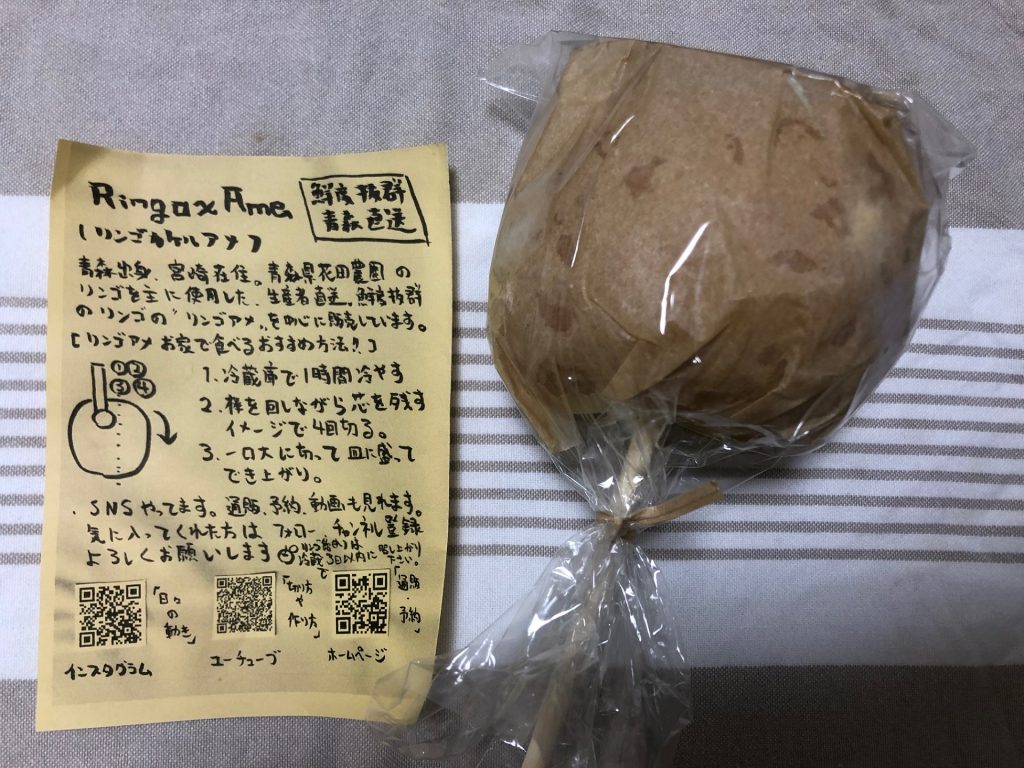 Ringo x Ame
鮮度抜群
青森直送
(リンゴカケルアメ)
青森出身、宮崎在住。青森県花田農園の
リンゴを主に使用した、生産者直送、鮮度抜群
のリンゴの"リンゴアメ"を中心に販売しています。
[リンゴアメ お家で食べるおすすめ方法!]
① ②
③ ④
1. 冷蔵庫で1時間冷やす
2. 棒を回しながら芯を残す
イメージで4回切る。
3. 一口大に切って皿に盛って
でき上がり。
・SNSやってます。通販、予約、動画も見れます。
気に入ってくれた方は フォロー チャンネル登録
よろしくお願いします
リンゴ飴は
冷蔵で3日以内に
召し上がり
下さい。
「日々
の
動き」
インスタグラム
「切り方
や
作り方」
ユーチューブ
「通販
・
予約」
ホームページ